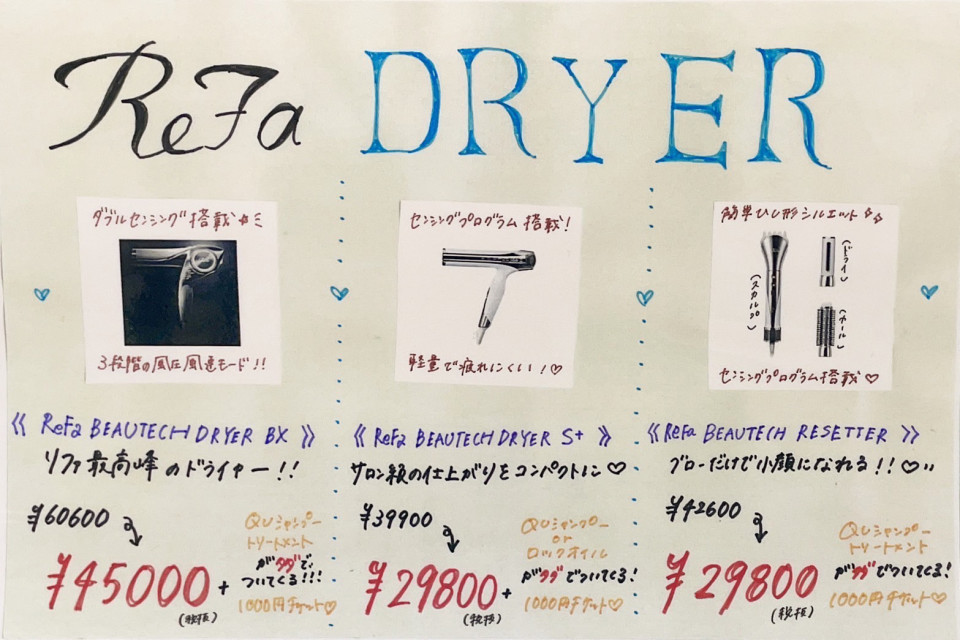 ReFa DRYER
ダブルセンシング搭載
3段階の風圧風速モード!!
《 ReFa BEAUTECH DRYER BX 》
リファ最高峰のドライヤー!!
¥60600
¥45000
(税抜)
+
QUシャンプー
トリートメント
がタダで、
ついてくる!!!
1000円チケット♡
センシングプログラム搭載!
軽量で疲れにくい!♡
《 ReFa BEAUTECH DRYER S+ 》
サロン級の仕上がりをコンパクトに♡
¥39900
¥29800
(税抜)
+
QUシャンプー
or
ロックオイル
がタダでついてくる!
1000円チケット♡
簡単ひし形シルエット
(スカルプ)
(ドライ)
(カール)
センシングプログラム搭載♡
《 ReFa BEAUTECH RESETTER 》
ブローだけで小顔になれる!!♡
¥42600
¥29800
(税抜)
QUシャンプー
トリートメント
がタダでついてくる!
1000円チケット♡